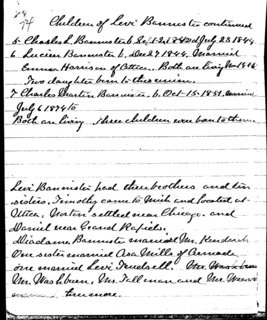 74
Children of Levi Bannister continued
5 Charles L Bannister b. d July 23 1844
6 Lucien Bannister b. Dec 27 1844. Married
Emma Harrison of Attica. Both are living
Two daughters born to this union.
7 Charles Martin Bannister b. Oct-15-1851. married
July 6 1874 to
Both are living three children were born to them.
Levi Bannister had three brothers and ten
sisters. Timothy came to Mich and located at
Attica. Norton settled near Chicago. and
Daniel near Grand Rapids.
Diadama Bannister married Mr. Kendrick
One sister married Asa Mills of Armada
one married Levi Truesdell. Mr.
Mr. Washburn, Mr. Tallman and Mr.
Livermore.